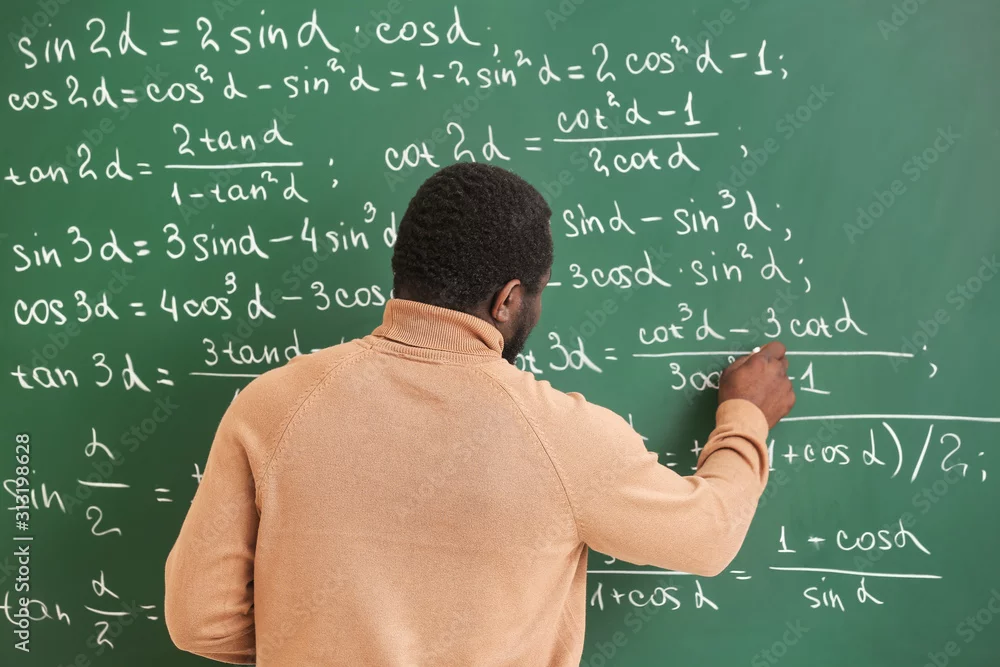 sin 2α = 2 sin α · cos α ;
cos 2α = cos² α - sin² α = 1 - 2 sin² α = 2 cos² α - 1 ;
tan 2α = 2 tan α / 1 - tan² α ; cot 2α = cot² α - 1 / 2 cot α ;
sin 3α = 3 sin α - 4 sin³ α sin α - sin³ α ;
cos 3α = 4 cos³ α - 3 cos - 3 cos α · sin² α ;
tan 3α = 3 tan α 3α = cot³ α - 3 cot α / 3 - 1 ;
sin α / 2 = = 1 + cos α ) / 2 ;
tan α / 2 = 1 + cos α = 1 - cos α / sin α
Adobe Stock | #313198628